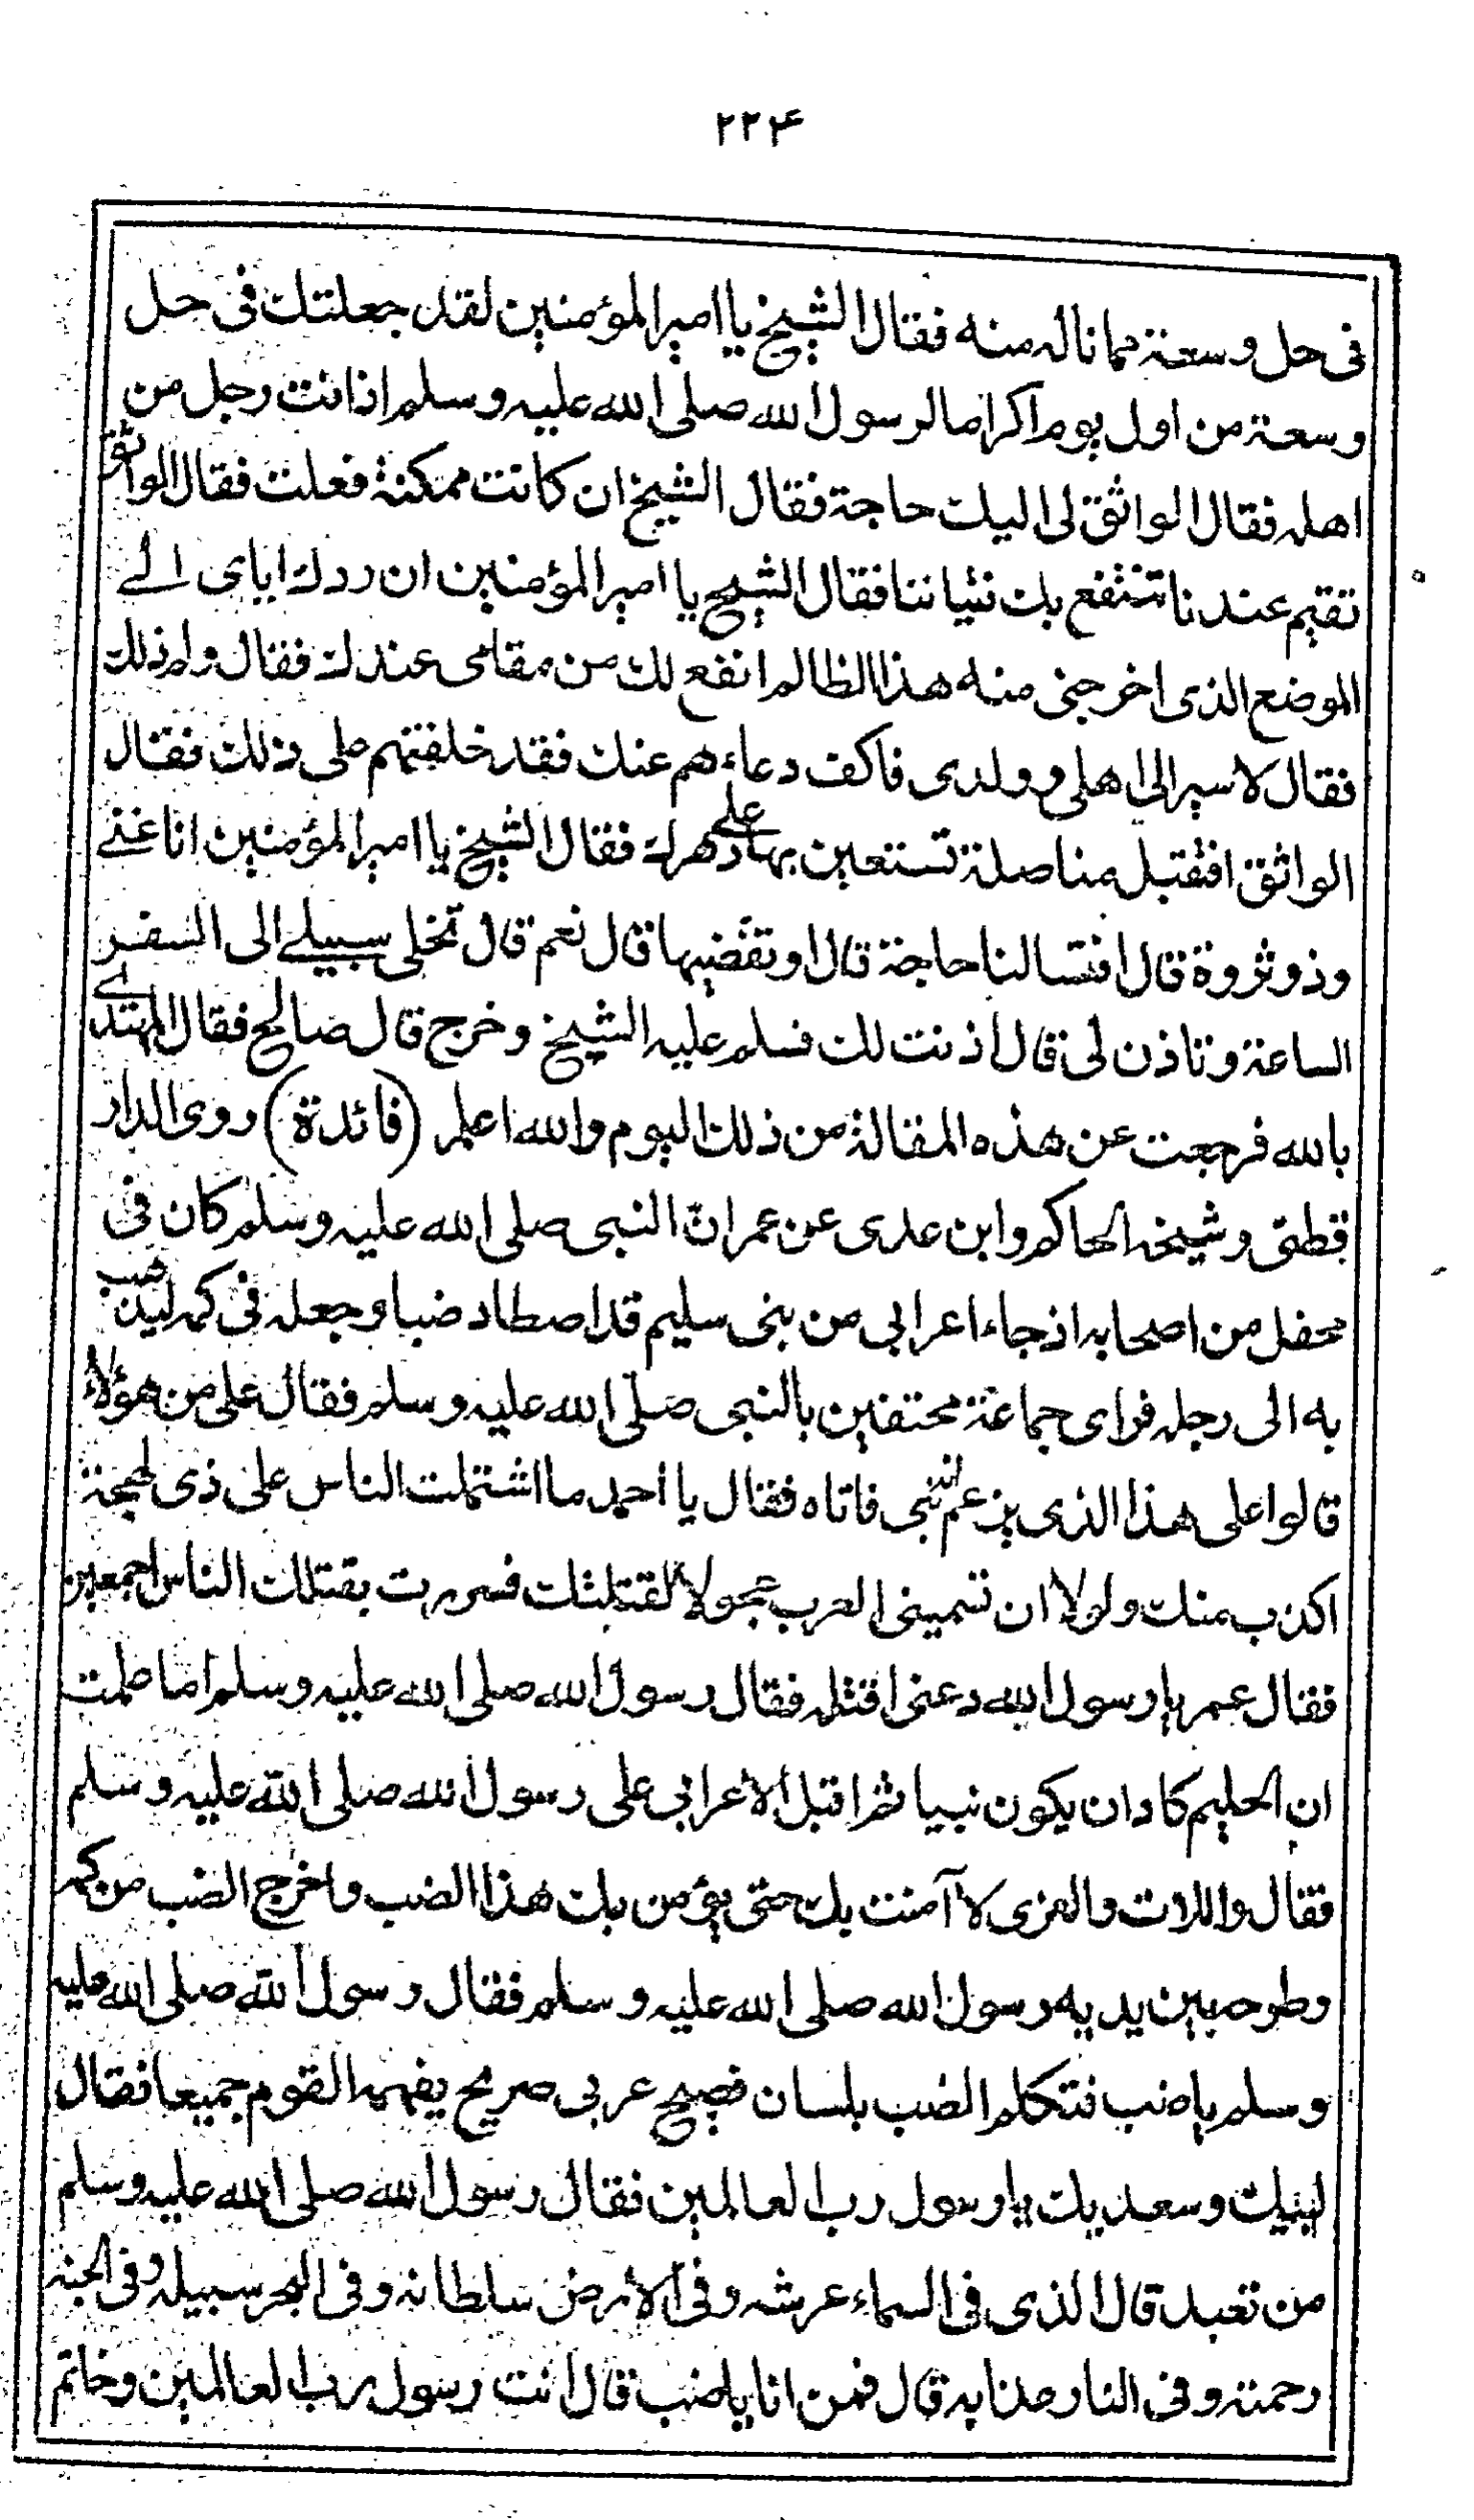 ۲۳۴
فى حل وسعة مما ناله منه فقال الشيخ يا امير المؤمنين لقد جعلتك فى حل
وسعة من اول يوم اكراما لرسول الله صلى الله عليه وسلم اذ انت رجل من
اهله فقال الواثق لى اليك حاجة فقال الشيخ ان كانت ممكنة فعلت فقال الواثق
تقيم عندنا تنتفع بك فتياننا فقال الشيخ يا امير المؤمنين ان ردك اياى الے
الموضع الذى اخرجنى منه هذا الظالم انفع لك من مقامى عندك فقال ولم ذلك
فقال لا سير الى اهلى وولدى فاكف دعاءهم عنك فقد خلفتهم على ذلك فقال
الواثق افتقبل مناصلة تستعين بها على دهرك فقال الشيخ يا امير المؤمنين انا غنے
وذو ثروة قال افتسالنا حاجة قال اوتقضيها قال نعم قال تخلى سبيلے الى السفر
الساعة وتاذن لى قال اذنت لك فسلم عليه الشيخ وخرج قال صالح فقال المهتدے
بالله فرجعت عن هذه المقالة من ذلك اليوم والله اعلم (فائدة) روى الدار
قطنى وشيخه الحاكم وابن عدى عن عمر ان النبى صلى الله عليه وسلم كان فى
محفل من اصحابه اذ جاء اعرابى من بنى سليم قد اصطاد ضبا وجعله فى كمه ليذهب
به الى رحله فراى جماعة محتفين بالنبى صلى الله عليه وسلم فقال على من هؤلاء
قالوا على هذا الذى يزعم انه نبى فاتاه فقال يا احمد ما اشتملت الناس على ذى لهجة
اكذب منك ولولا ان تسمينى العرب عجولا لقتلتك فسررت بقتلك الناس اجمعين
فقال عمر يا رسول الله دعنى اقتله فقال رسول الله صلى الله عليه وسلم اما علمت
ان الحليم كاد ان يكون نبيا ثم اقبل الاعرابى على رسول الله صلى الله عليه وسلم
فقال واللات والعزى لا آمنت بك حتى يؤمن بك هذا الضب واخرج الضب من كمه
وطرحه بين يديه رسول الله صلى الله عليه وسلم فقال رسول الله صلى الله عليه
وسلم يا ضب فتكلم الضب بلسان فصيح عربى صريح يفهمه القوم جميعا فقال
لبيك وسعديك يا رسول رب العالمين فقال رسول الله صلى الله عليه وسلم
من تعبد قال الذى فى السماء عرشه وفى الارض سلطانه وفى البحر سبيله وفى الجنة
رحمته وفى النار عذابه قال فمن انا يا ضب قال انت رسول رب العالمين وخاتم